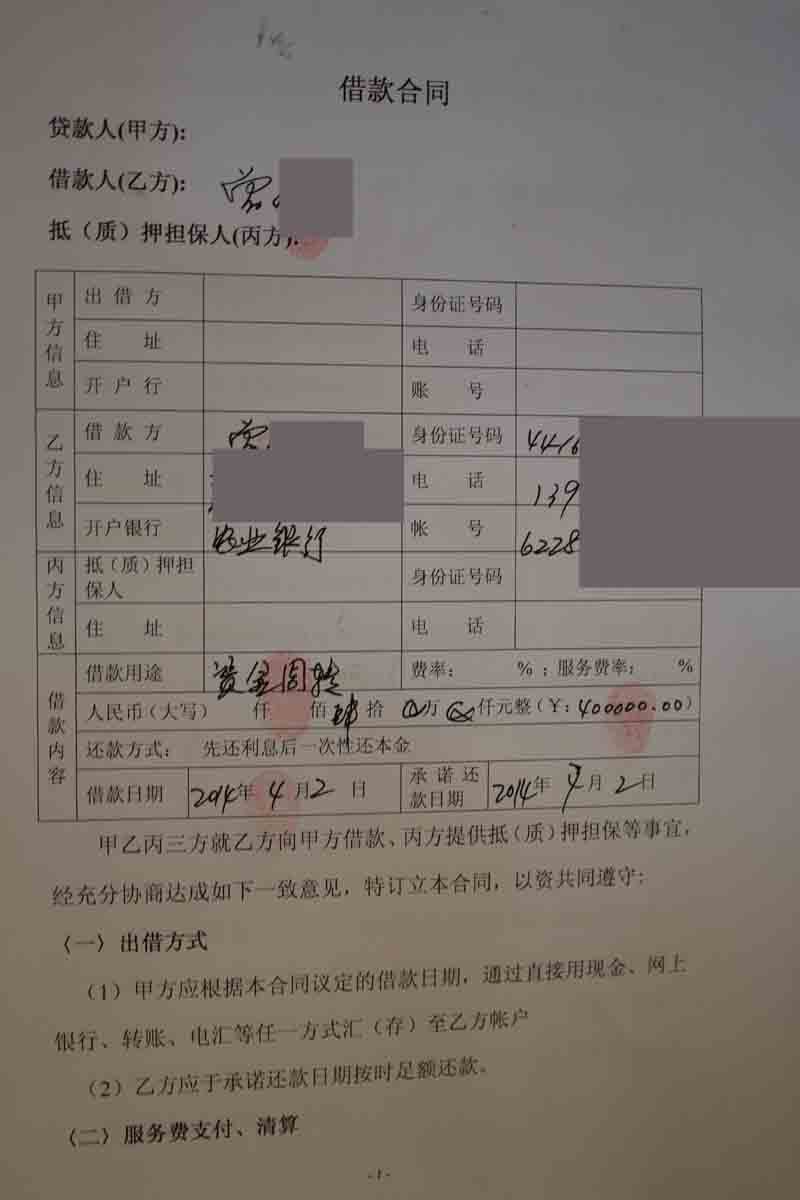 借款合同
贷款人(甲方):
借款人(乙方): 曾
抵（质）押担保人(丙方):
甲方信息 出借方 身份证号码
住 址 电 话
开户行 账 号
乙方信息 借款方 曾 身份证号码 4416
住 址 电 话 139
开户银行 农业银行 帐 号 6228
丙方信息 抵（质）押担保人 身份证号码
住 址 电 话
借款内容 借款用途 资金周转 费率: %；服务费率: %
人民币（大写） 仟 佰 肆拾 万 仟元整（¥: 400000.00）
还款方式: 先还利息后一次性还本金
借款日期 2014年 4月2日 承诺还款日期 2014年 月2日
甲乙丙三方就乙方向甲方借款、丙方提供抵（质）押担保等事宜，
经充分协商达成如下一致意见，特订立本合同，以资共同遵守:
〈一〉出借方式
（1）甲方应根据本合同议定的借款日期，通过直接用现金、网上
银行、转账、电汇等任一方式汇（存）至乙方帐户
（2）乙方应于承诺还款日期按时足额还款。
〈二〉服务费支付、清算
- 1 -